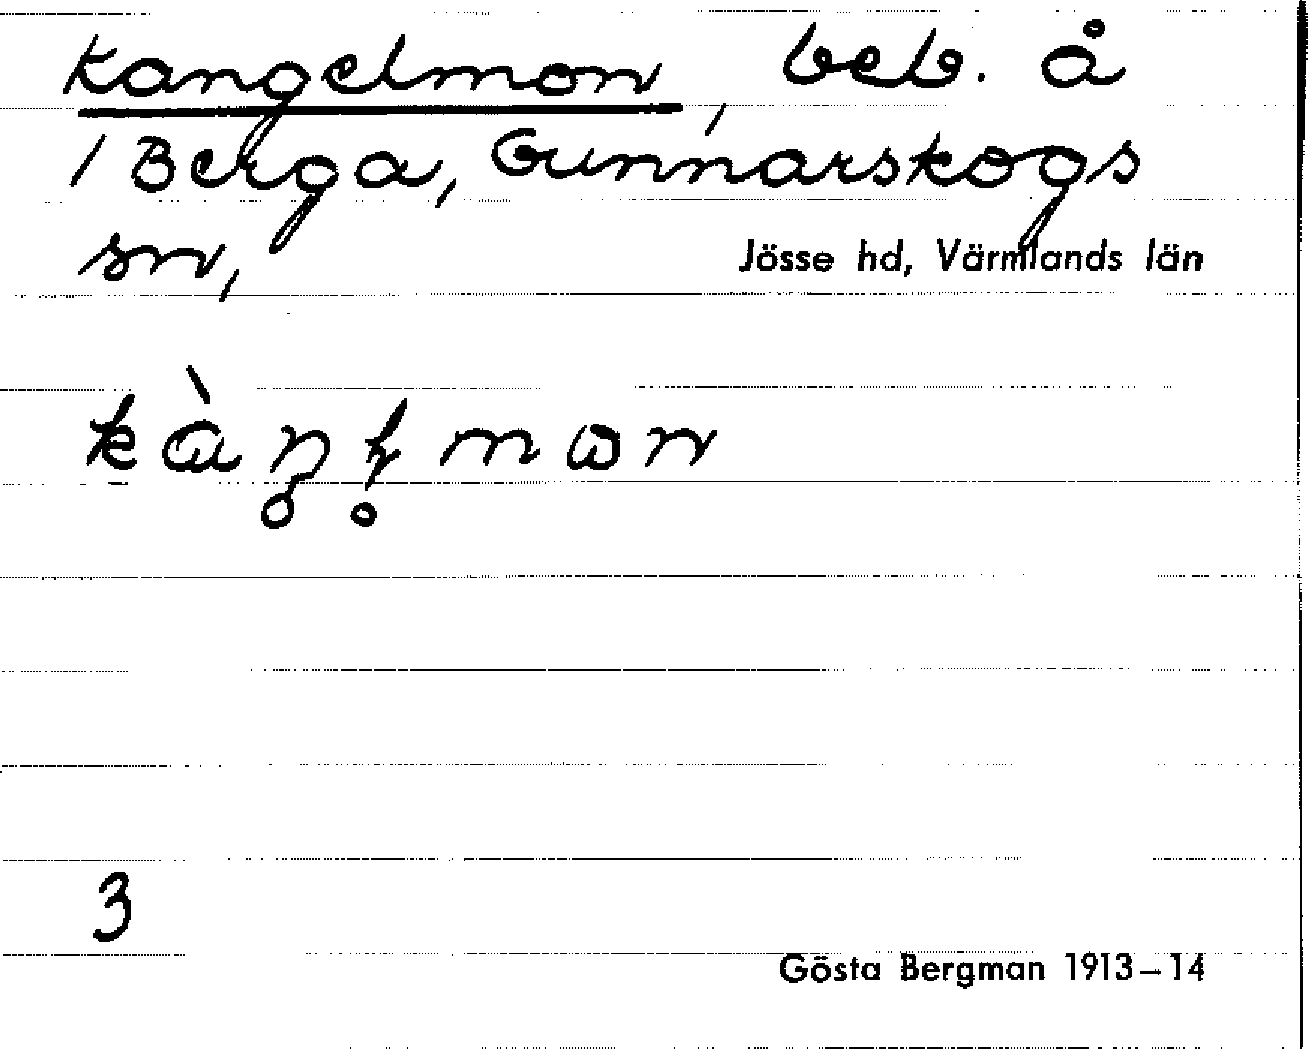 Kangelmon, beb. å
/ Berga, Gunnarskogs
sn, Jösse hd, Värmlands län
3
Gösta Bergman 1913–14